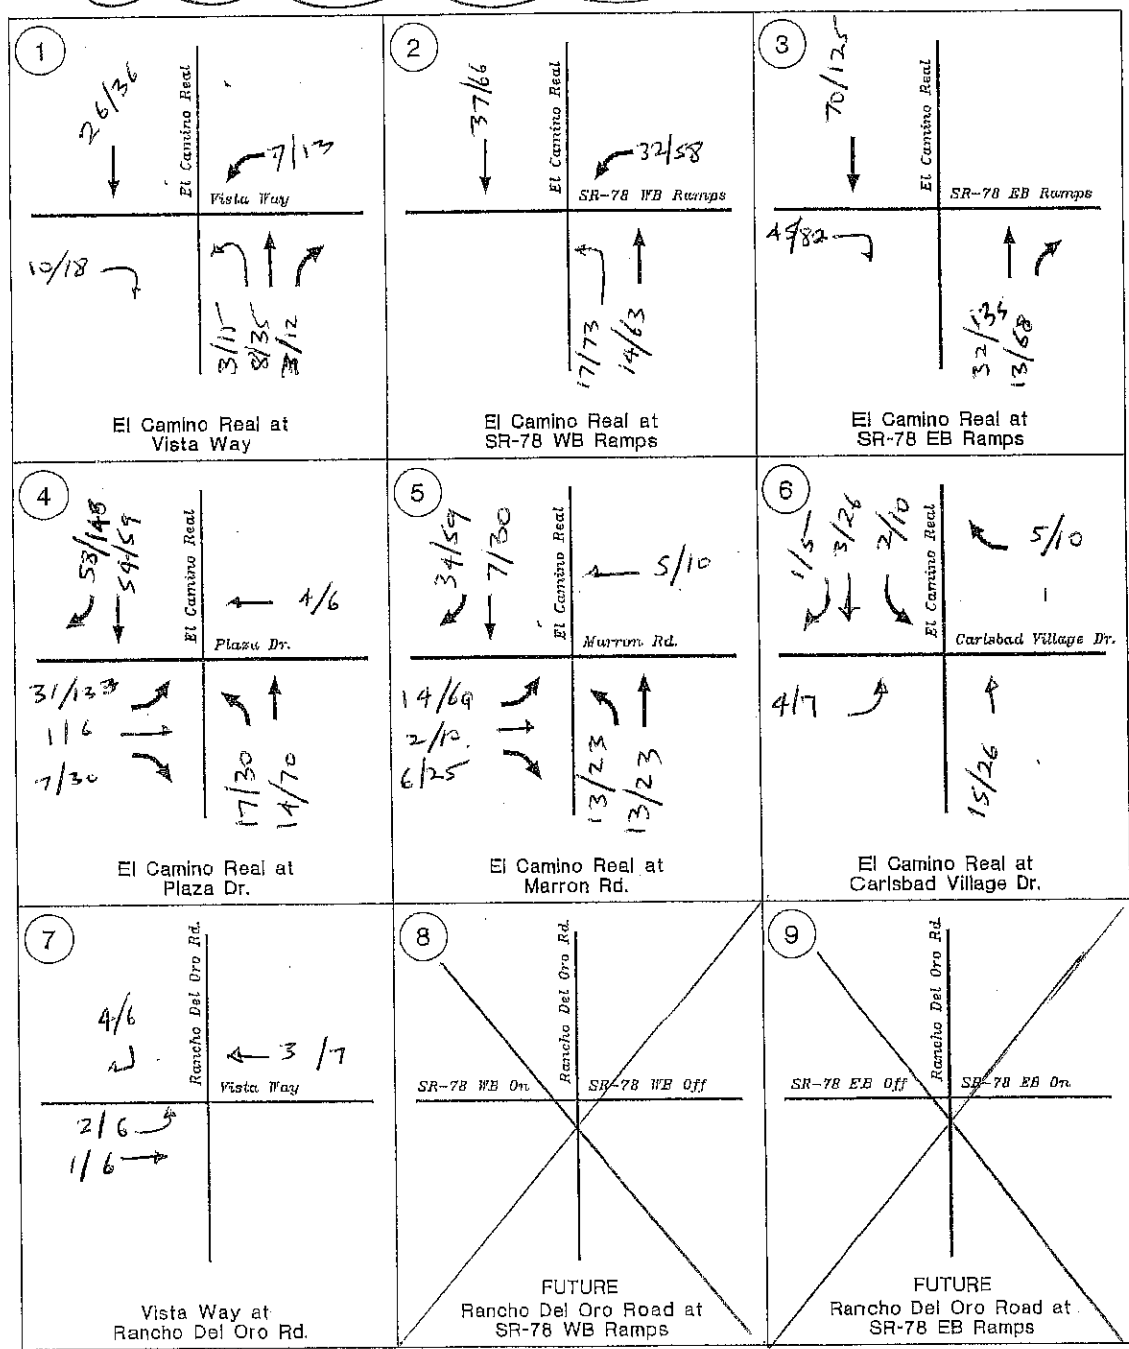 1
26/36
El Camino Real
7/13
Vista Way
10/18
3/15
8/35
3/12
El Camino Real at
Vista Way
2
37/66
El Camino Real
32/58
SR-78 WB Ramps
17/73
14/63
El Camino Real at
SR-78 WB Ramps
3
70/125
El Camino Real
SR-78 EB Ramps
45/82
32/135
13/58
El Camino Real at
SR-78 EB Ramps
4
54/59
El Camino Real
4/6
Plaza Dr.
31/133
1/6
7/30
17/30
14/70
El Camino Real at
Plaza Dr.
5
34/59
7/30
El Camino Real
5/10
Marron Rd.
14/69
2/10
6/25
13/23
13/23
El Camino Real at
Marron Rd.
6
1/5
3/26
2/10
El Camino Real
5/10
Carlsbad Village Dr.
4/7
15/26
El Camino Real at
Carlsbad Village Dr.
7
4/6
Rancho Del Oro Rd.
3/7
Vista Way
2/6
1/6
Vista Way at
Rancho Del Oro Rd.
8
Rancho Del Oro Rd.
SR-78 WB On
SR-78 WB Off
FUTURE
Rancho Del Oro Road at
SR-78 WB Ramps
9
Rancho Del Oro Rd.
SR-78 EB Off
SR-78 EB On
FUTURE
Rancho Del Oro Road at
SR-78 EB Ramps